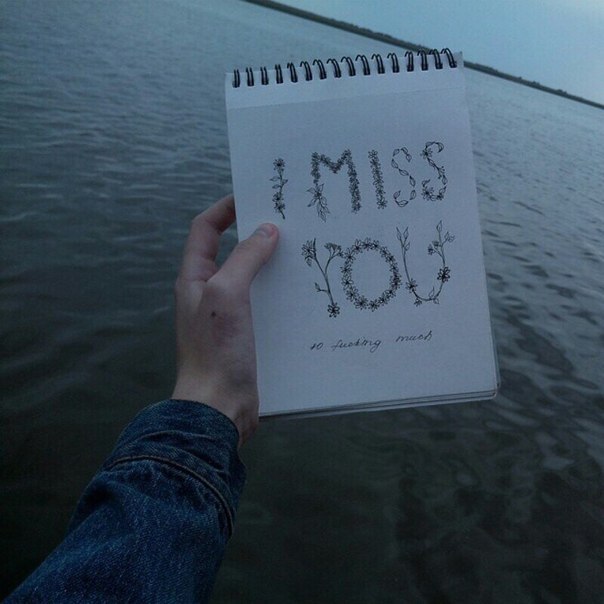 I MISS
YOU
so fucking much